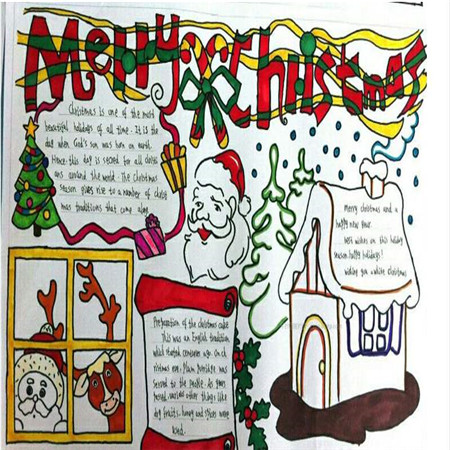 Merry Christmas
Christmas is one of the most
beautiful holidays of all time. It is the
day when God's son was born on earth.
Hence this day is secred for all christi
ans around the world. The Christmas
season gives rise to a number of christ
mas traditions that come along
merry christmas and a
happy new year.
best wishes on this holiday
season. happy holidays!
wishing you a white christmas
Preparation of the christmas cake
This was an English tradition,
which started centuries ago. On ch
ristmas eve, plum porridge was
served to the people. As years
passed, various other things like
dry fruits, honey and spices were
used.